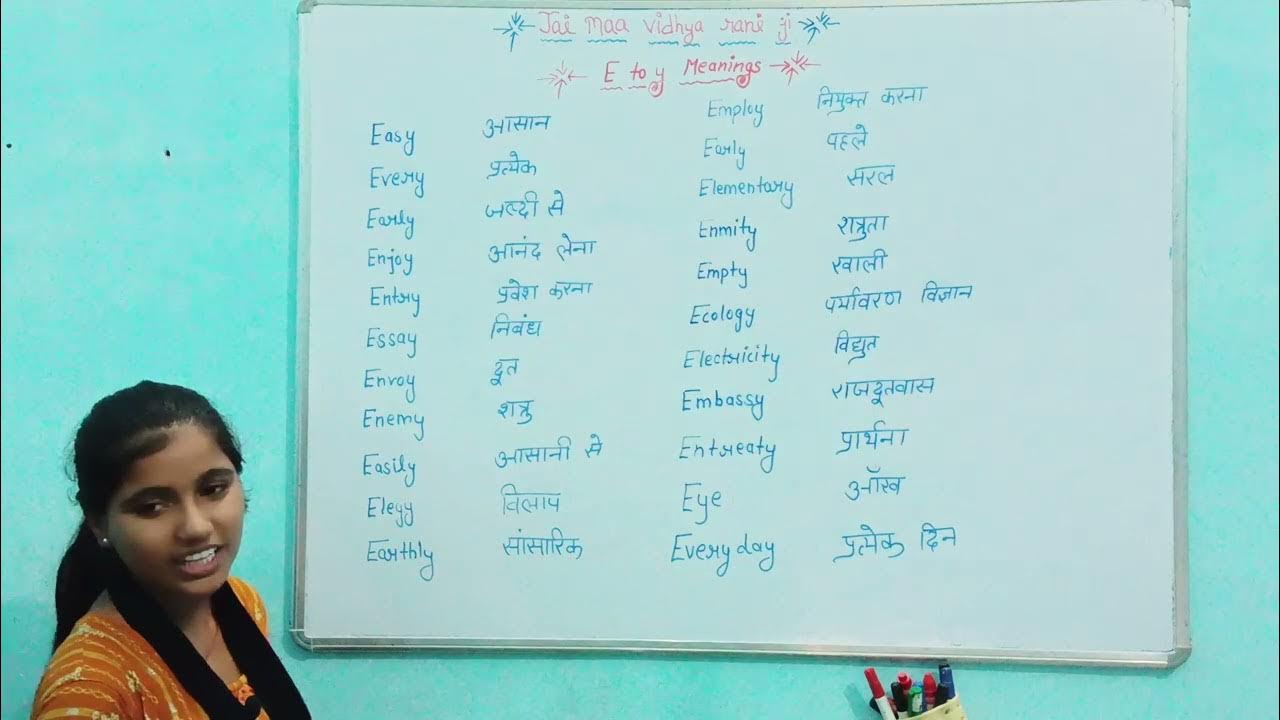 Jai maa vidhya rani ji
E to y Meanings
Easy आसान
Every प्रत्येक
Early जल्दी से
Enjoy आनंद लेना
Entry प्रवेश करना
Essay निबंध
Envoy दूत
Enemy शत्रु
Easily आसानी से
Elegy विलाप
Earthly सांसारिक
Employ नियुक्त करना
Early पहले
Elementary सरल
Enmity शत्रुता
Empty खाली
Ecology पर्यावरण विज्ञान
Electricity विद्युत
Embassy राजदूतवास
Entreaty प्रार्थना
Eye आँख
Everyday प्रत्येक दिन